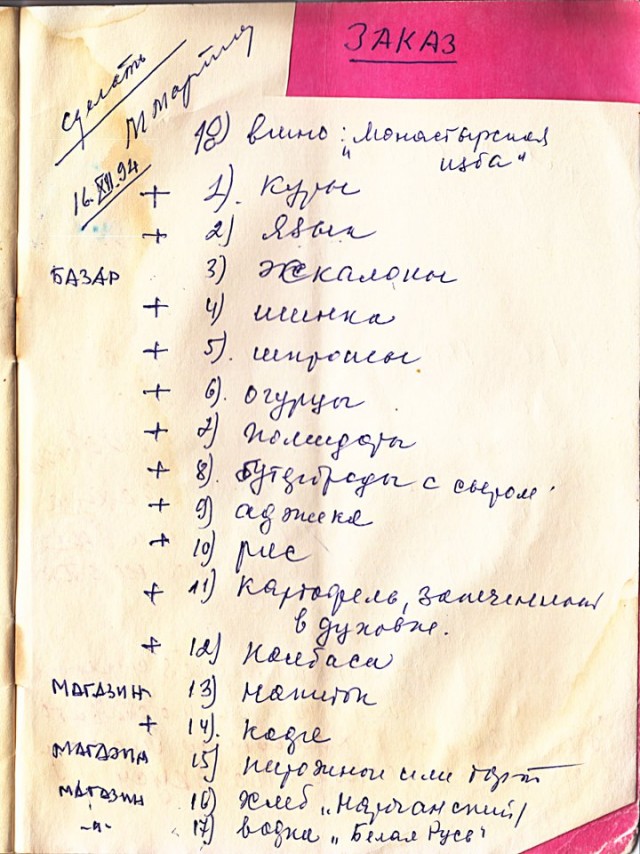 ЗАКАЗ
сделать
16.XII.94
18) вино: "Монастырская
изба"
+ 1). Куры
+ 2) Языки
БАЗАР 3) Эскалопы
+ 4) шинка
+ 5). шпроты
+ 6). огурцы
+ 7) помидоры
+ 8). бутерброды с сыром
+ 9) аджика
+ 10) рис
+ 11) картофель, запеченный
в духовке.
+ 12) колбаса
МАГАЗИН 13) напиток
+ 14). кофе
МАГАЗИН 15) пирожное или торт
МАГАЗИН 16) хлеб „Нарочанский"
-"- 17) водка „Белая Русь"